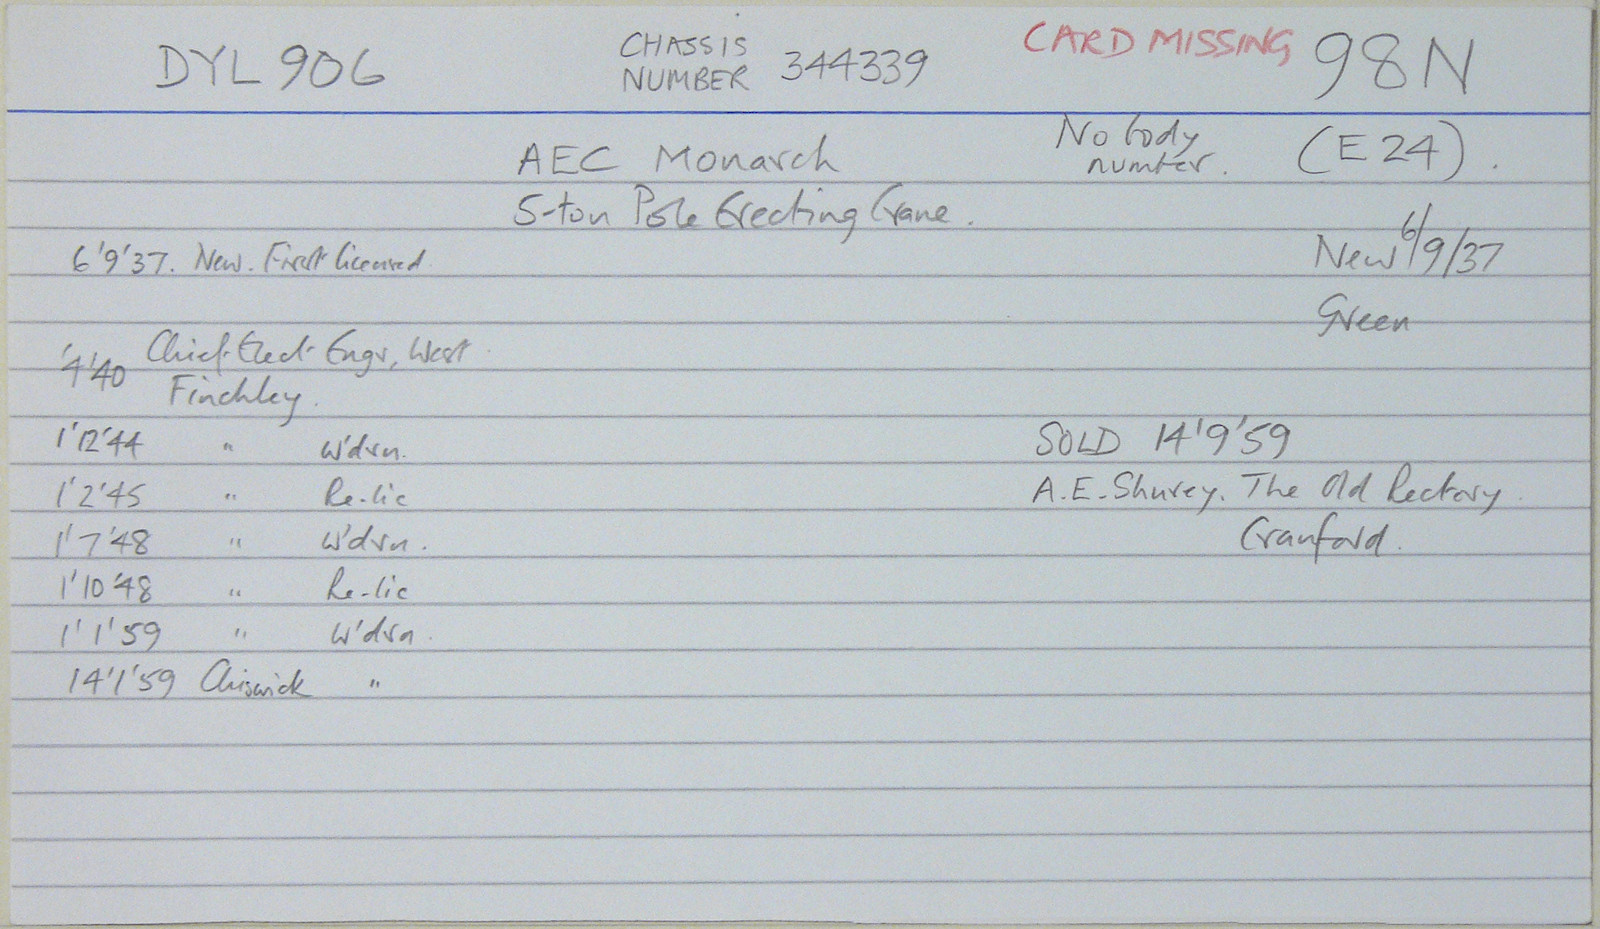 DYL 906
CHASSIS
NUMBER 344339
CARD MISSING
98N
AEC Monarch
No body
number.
(E 24).
5-ton Pole Erecting Crane.
6'9'37. New. First licensed.
New 6/9/37
Green
'4'40 Chief Elect Engr, West
Finchley.
1'12'44 " W'drn.
SOLD 14'9'59
1'2'45 " Re-lic
A.E. Shurey. The Old Rectory.
1'7'48 " W'drn.
Cranford.
1'10'48 " Re-lic
1'1'59 " W'drn.
14'1'59 Chiswick "